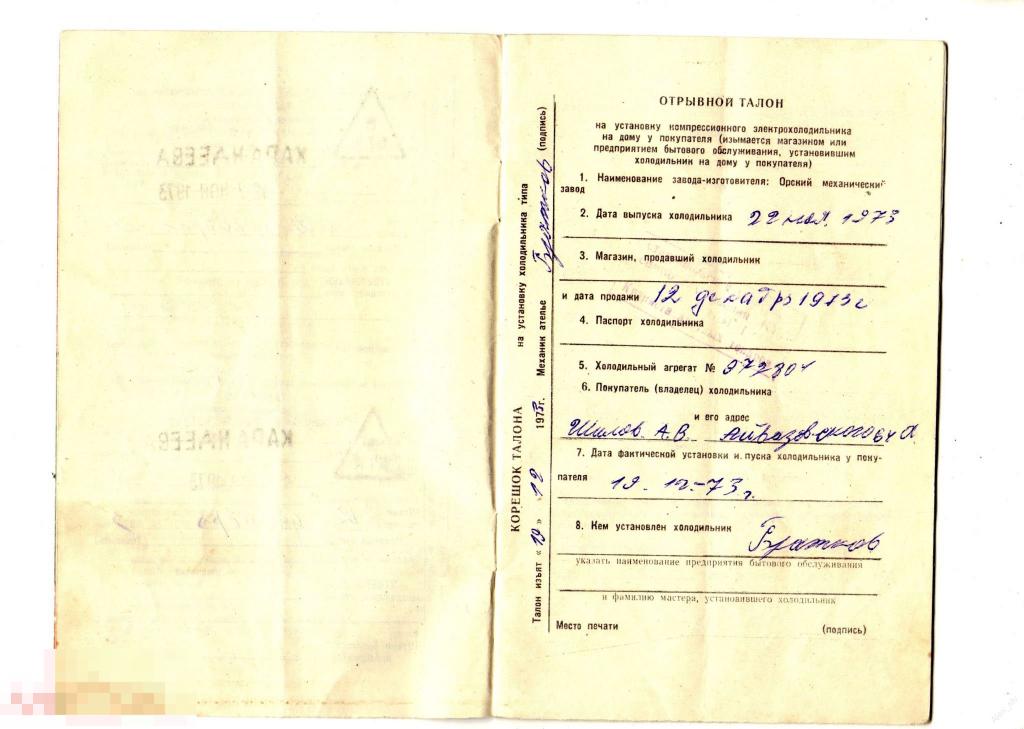 ОТРЫВНОЙ ТАЛОН
на установку компрессионного электрохолодильника
на дому у покупателя (изымается магазином или
предприятием бытового обслуживания, установившим
холодильник на дому у покупателя)
1. Наименование завода-изготовителя: Орский механический
завод
2. Дата выпуска холодильника 22 ноя. 1973
3. Магазин, продавший холодильник
и дата продажи 12 декабрь 1973 г
4. Паспорт холодильника
5. Холодильный агрегат № 972804
6. Покупатель (владелец) холодильника
и его адрес
Шилов А.В. Айвазовского 64
7. Дата фактической установки и пуска холодильника у поку-
пателя 19. 12-73 г.
8. Кем установлен холодильник Братков
указать наименование предприятия бытового обслуживания
и фамилию мастера, установившего холодильник
Место печати (подпись)
КОРЕШОК ТАЛОНА на установку холодильника типа
Талон изъят «19» 12 1973г. Механик ателье Братков (подпись)
КАРАНДЕЕВА
1973
КАРАНДЕЕВ